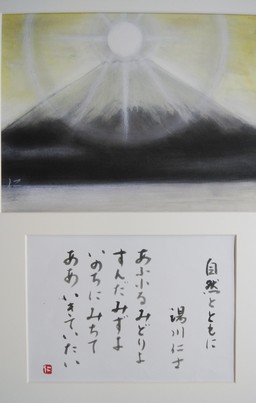 自然とともに
湯川仁才
あふるるみどりよ
すんだみずよ
いのちにみちて
ああ いきていたい
仁
に